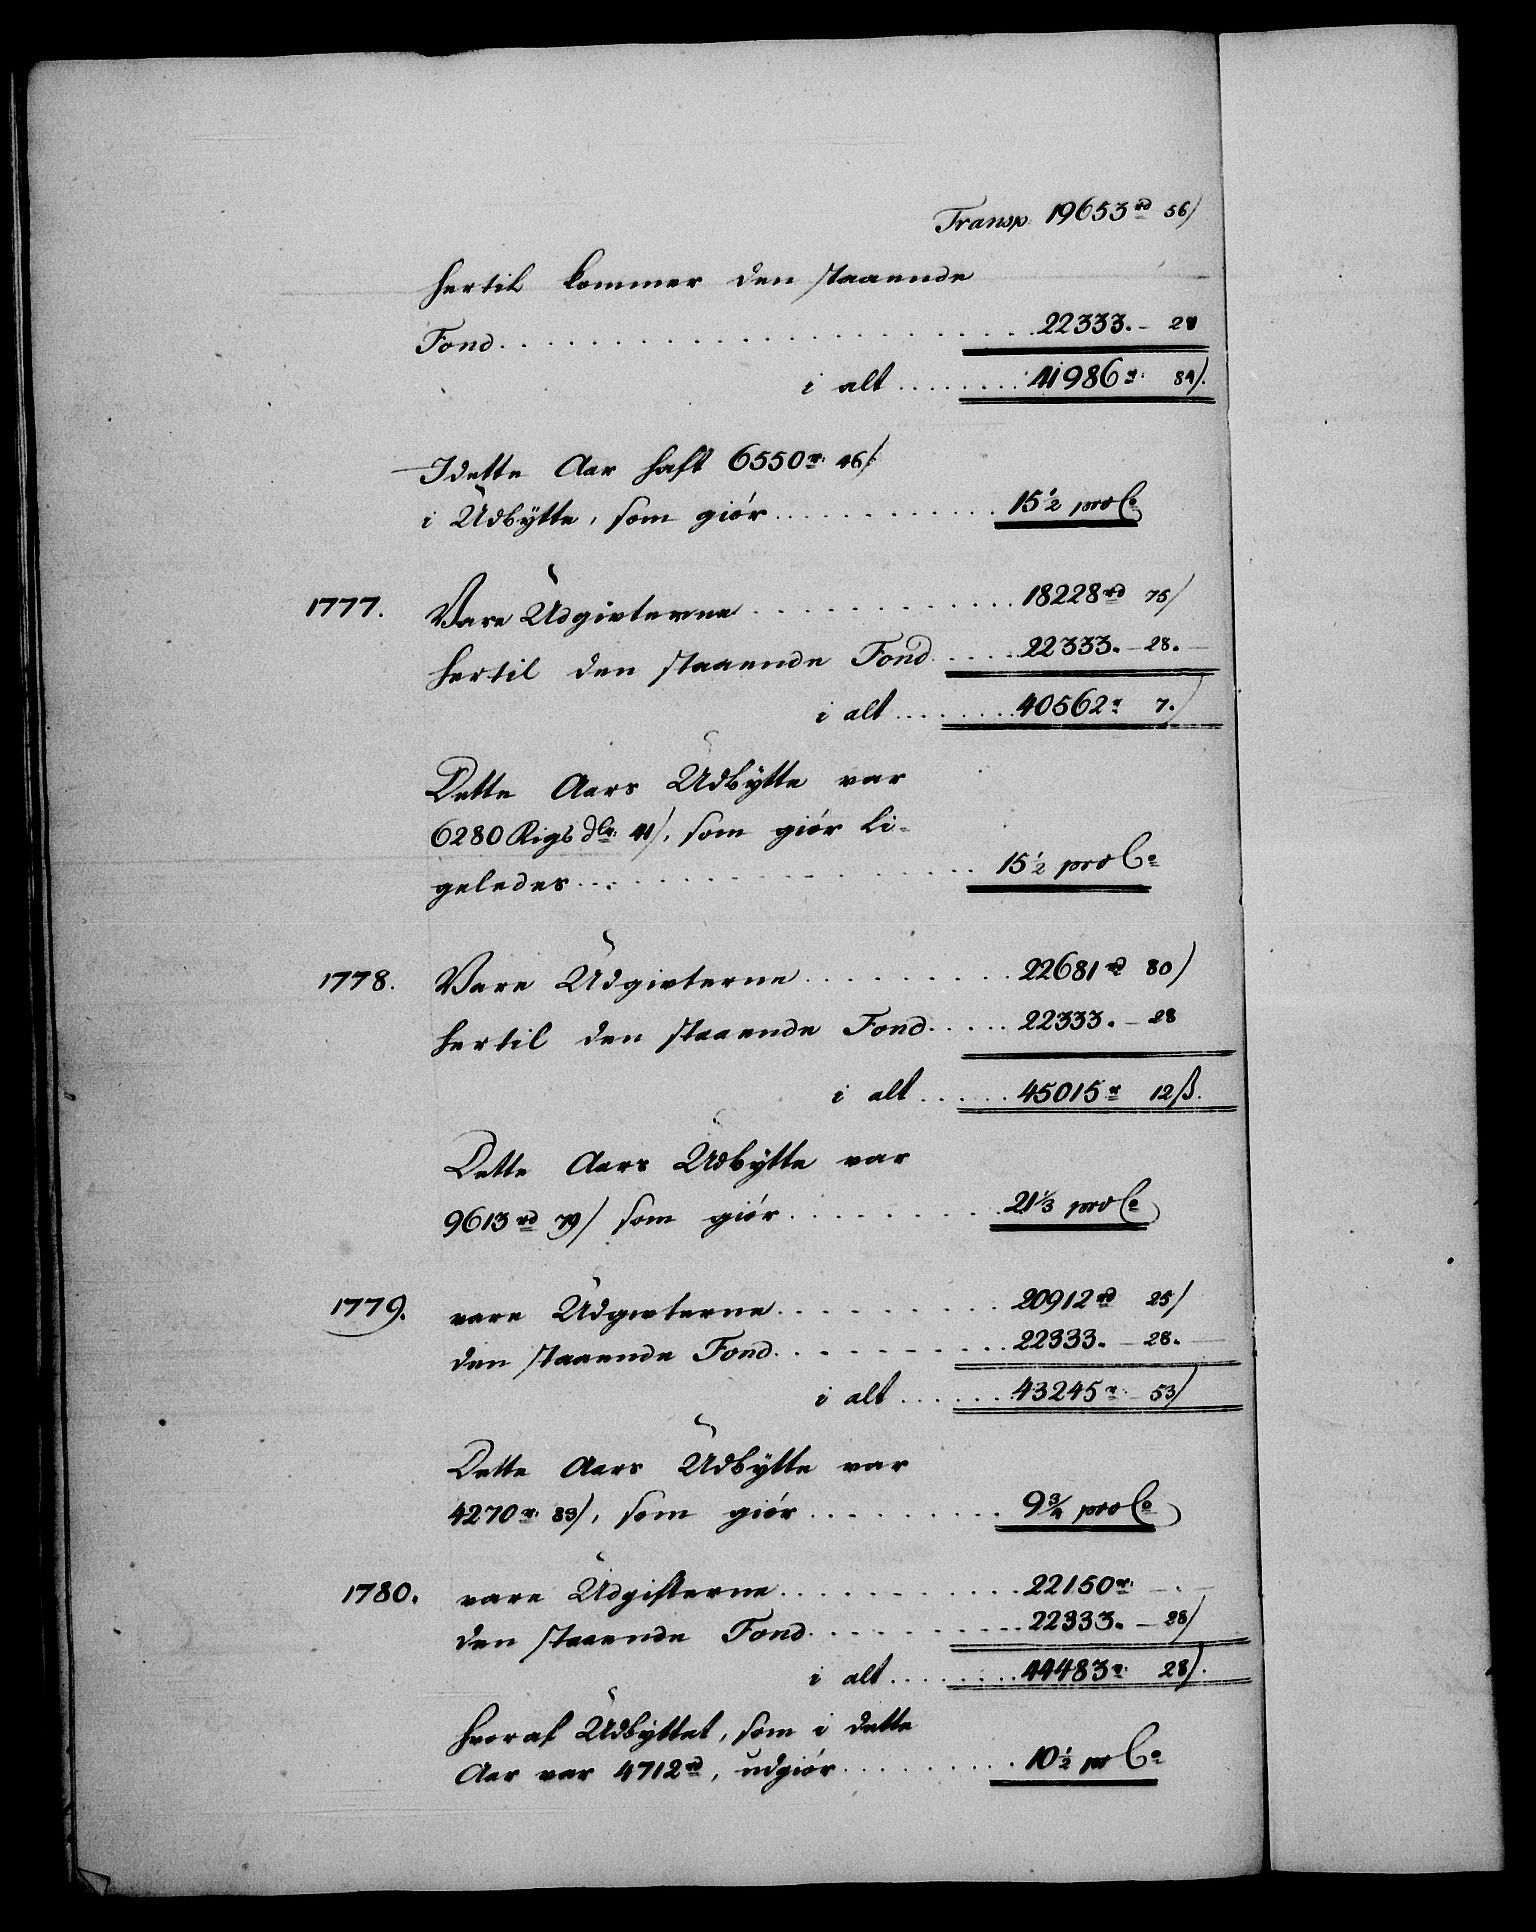 Transp. 19653 rd 56 ß
hertil kommer den staaende
Fond . . . . . . . 22333. – 28
i alt . . . . . 41986 r: 84 ß.
I dette Aar haft 6550 r: 46 ß
i Udbÿtte, som giör . . . . . . 15 1/2 pro Co
1777. Vare Udgivterne . . . . . . 18228 rd 75 ß
hertil den staaende Fond . . . . 22333. – 28. –
i alt . . . . . 40562 r 7. ß
Dette Aars Udbÿtte var
6280 Rigsdlr: 41 ß, som giör li-
geledes . . . . . . . 15 1/2 pro Co
1778. Vare Udgivterne . . . . . . 22681 rd 80 ß
hertil den staaende Fond . . . . 22333. – 28
i alt . . . . . 45015 r 12 ß.
Dette Aars Udbÿtte var
9613 rd 79 ß som giör . . . . . . 21 1/3 pro Co
1779. vare Udgivterne . . . . . . 20912 rd 25 ß
den staaende Fond . . . . . . 22333. – 28. –
i alt . . . . . 43245 r: – 53 ß
Dette Aars Udbÿtte var
4270 r: 83 ß, som giör . . . . . . 9 3/4 pro Co
1780. vare Udgifterne . . . . . . 22150 r: – . –
den staaende Fond . . . . . . 22333. – 28 ß
i alt . . . . . 44483 r: 28 ß.
hvoraf Udbyttet, som i dette
Aar var 4712 rd, udgiör . . . . . . 10 1/2 pr Co